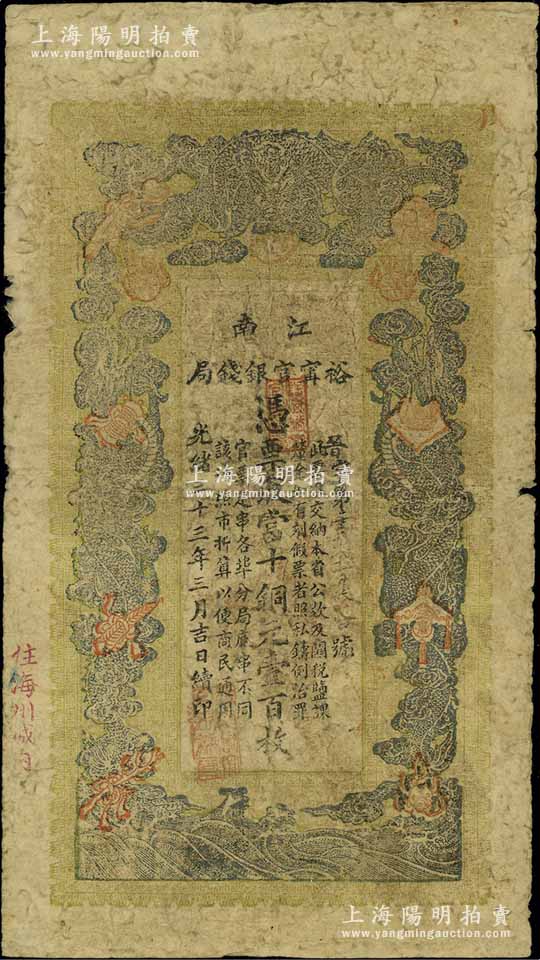 上海陽明拍賣
www.yangmingauction.com
江南
裕甯官銀錢局
此票交納本省公款及關稅鹽課
釐金如有刻假票者照私鑄例治罪
憑票
當十銅元壹百枚
官定串各埠分局底串不同
該照市折算以便商民通用
光緒十三年三月吉日續印
號
住海州
上海陽明拍賣
www.yangmingauction.com
上海陽明拍賣
www.yangmingauction.com